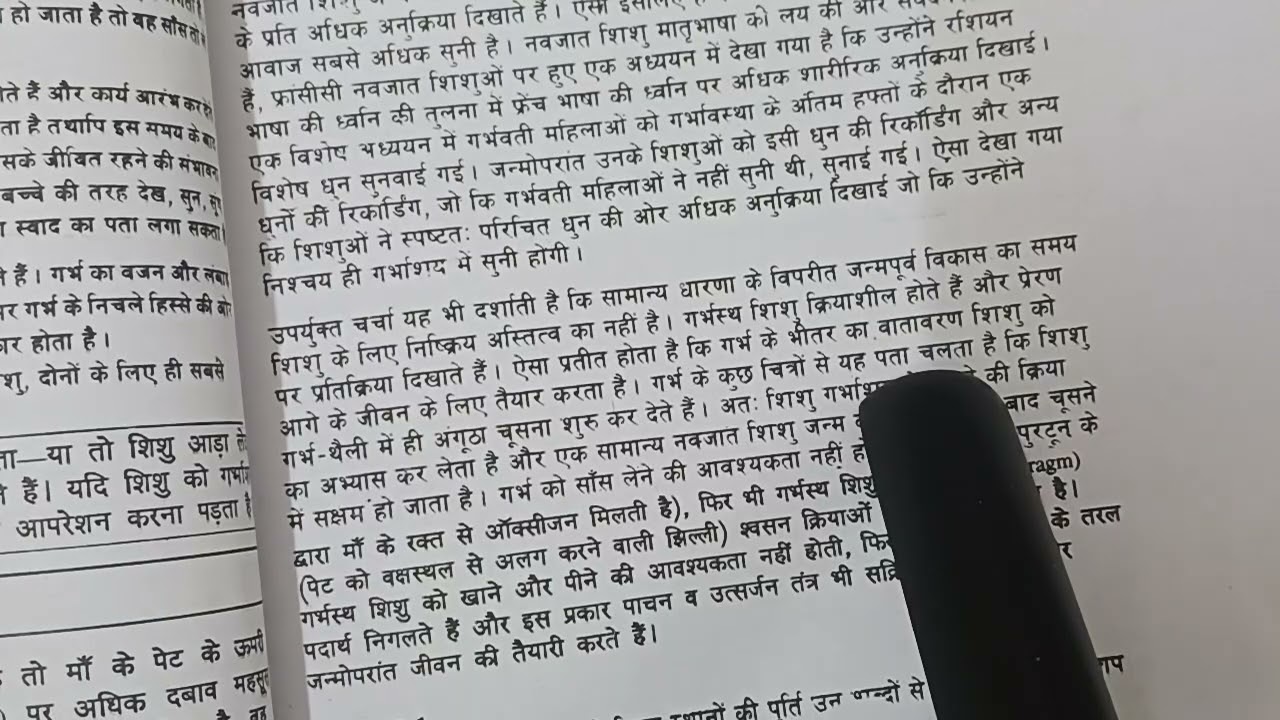 हो जाता है तो वह साँस तो
ते हैं और कार्य आरंभ कर
ता है तथापि इस समय के बाद
सके जीवित रहने की संभावना
बच्चे की तरह देख, सुन,
स्वाद का पता लगा सकता
हैं। गर्भ का वजन और लंबा
र गर्भ के निचले हिस्से की ओ
र होता है।
शु, दोनों के लिए ही सबसे
ता—या तो शिशु आड़ा
हैं। यदि शिशु को गर्भा
आपरेशन करना पड़ता है
तो माँ के पेट के ऊपरी
पर अधिक दबाव महसू
नवजात शिशु
के प्रति अधिक अनुक्रिया दिखाते हैं।
आवाज सबसे अधिक सुनी है। नवजात शिशु मातृभाषा की लय की ओर
हैं, फ्रांसीसी नवजात शिशुओं पर हुए एक अध्ययन में देखा गया है कि उन्होंने रशियन
भाषा की ध्वनि की तुलना में फ्रेंच भाषा की ध्वनि पर अधिक शारीरिक अनुक्रिया दिखाई।
एक विशेष अध्ययन में गर्भवती महिलाओं को गर्भावस्था के अंतिम हफ्तों के दौरान एक
विशेष धुन सुनवाई गई। जन्मोपरांत उनके शिशुओं को इसी धुन की रिकॉर्डिंग और अन्य
धुनों की रिकार्डिंग, जो कि गर्भवती महिलाओं ने नहीं सुनी थी, सुनाई गई। ऐसा देखा गया
कि शिशुओं ने स्पष्टतः परिचित धुन की ओर अधिक अनुक्रिया दिखाई जो कि उन्होंने
निश्चय ही गर्भाशय में सुनी होगी।
उपर्युक्त चर्चा यह भी दर्शाती है कि सामान्य धारणा के विपरीत जन्मपूर्व विकास का समय
शिशु के लिए निष्क्रिय अस्तित्व का नहीं है। गर्भस्थ शिशु क्रियाशील होते हैं और प्रेरण
पर प्रतिक्रिया दिखाते हैं। ऐसा प्रतीत होता है कि गर्भ के भीतर का वातावरण शिशु को
आगे के जीवन के लिए तैयार करता है। गर्भ के कुछ चित्रों से यह पता चलता है कि शिशु
गर्भ-थैली में ही अंगूठा चूसना शुरु कर देते हैं। अतः शिशु की क्रिया
का अभ्यास कर लेता है और एक सामान्य नवजात शिशु जन्म बाद चूसने
में सक्षम हो जाता है। गर्भ को साँस लेने की आवश्यकता नहीं के
द्वारा माँ के रक्त से ऑक्सीजन मिलती है), फिर भी गर्भस्थ
(पेट को वक्षस्थल से अलग करने वाली झिल्ली) श्वसन क्रियाओं है।
गर्भस्थ शिशु को खाने और पीने की आवश्यकता नहीं होती, के तरल
पदार्थ निगलते हैं और इस प्रकार पाचन व उत्सर्जन तंत्र भी
जन्मोपरांत जीवन की तैयारी करते हैं।
की पूर्ति उन शब्दों से